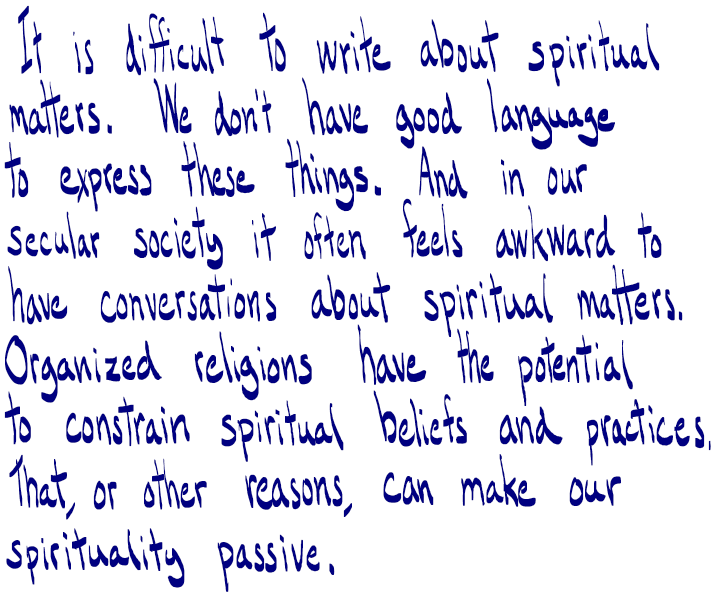 It is difficult to write about spiritual
matters. We don't have good language
to express these things. And in our
secular society it often feels awkward to
have conversations about spiritual matters.
Organized religions have the potential
to constrain spiritual beliefs and practices.
That, or other reasons, can make our
spirituality passive.